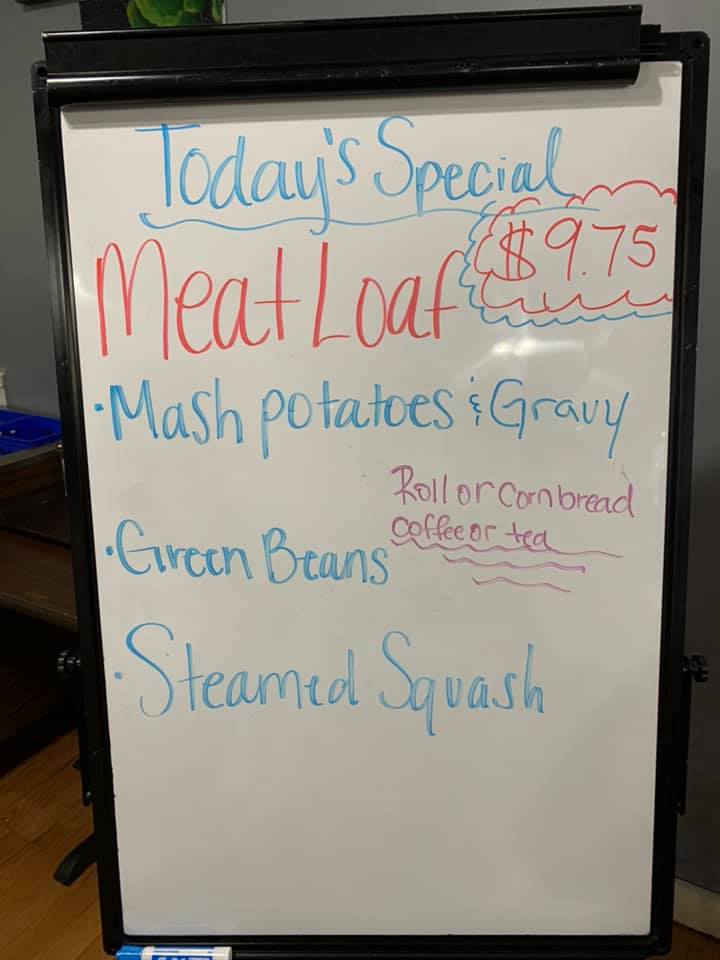 Today's Special
$9.75
Meat Loaf
·Mash potatoes & Gravy
Roll or Cornbread
coffee or tea
·Green Beans
·Steamed Squash